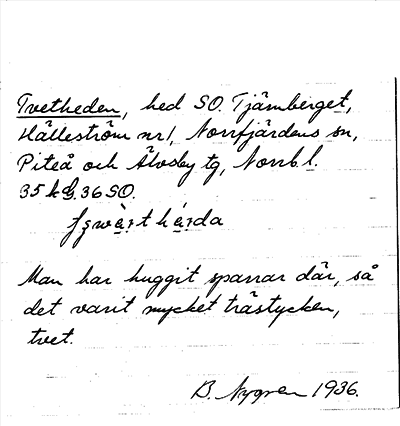 Tvetheden, hed SO. Tjärnberget,
Hälleström nr 1, Norrfjärdens sn,
Piteå och Älvsby tg, Norrb. l.
35 k 36 SO.
härda
Man har huggit sparrar där, så
det varit mycket trästycken,
tvet.
B. Nygren 1936.